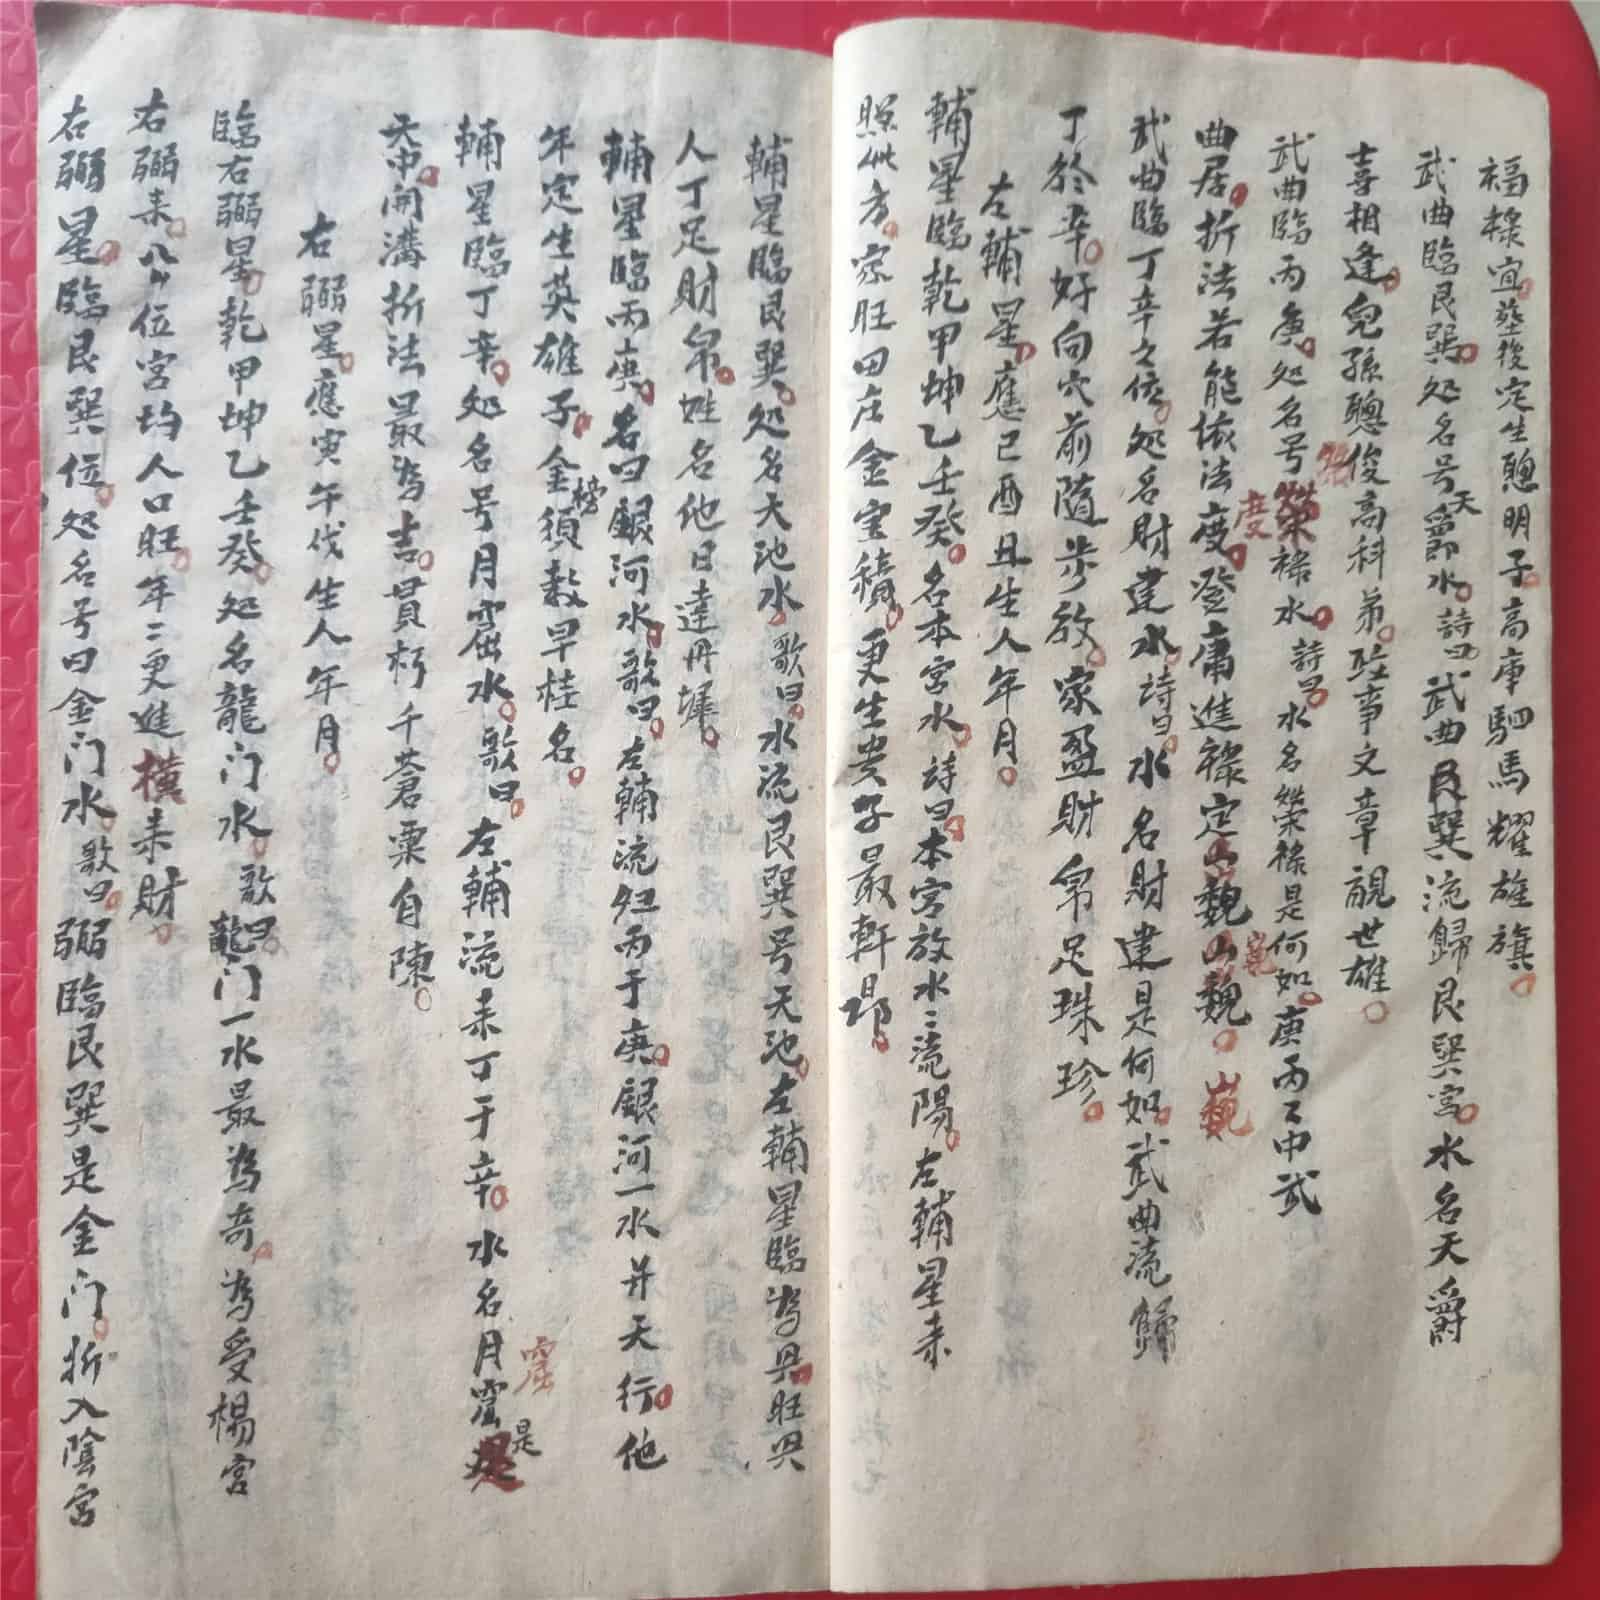 福祿宜。塟後定生聰明子。高車駟馬耀雄旗。
武曲臨艮巽。处名号天爵水。詩曰。武曲艮巽流歸艮巽宮。水名天爵
喜相逢。兒孫聰俊高科第。政事文章親世雄。
武曲臨丙庚。处名号榮祿水。詩曰。水名榮祿是何如。庚丙二中武
曲居。折法若能依法度。登庸進祿定巍巍。
武曲臨丁辛之位。处名財建水。詩曰。水名財建是何如。武曲流歸
丁於辛。好向穴前隨步放。家盈財帛足珠珍。
左輔星。應巳酉丑生人年月。
輔星臨乾甲坤乙壬癸。名本宮水。詩曰。本宮放水二流陽。左輔星来
照此方。家旺田庄金宝積。更生貴子最軒昂。
輔星臨艮巽。处名天池水。歌曰。水流艮巽号天池。左輔星臨為具。旺興
人丁足財帛。姓名他日達丹墀。
輔星臨丙庚。名曰銀河水。歌曰。左輔流归丙于庚。銀河一水并天行。他
年定生英雄子。金榜須教早桂名。
輔星臨丁辛。处名号月窟水。歌曰。左輔流来丁于辛。水名月窟是
天中。開溝折法最為吉。貫朽千蒼粟自陳。
右弼星。應寅午戌生人年月。
臨右弼星。乾甲坤乙壬癸。处名龍门水。歌曰。龍门一水最為奇。為受楊宮
右弼来。八位宮均人口旺。年二更進橫来財。
右弼星。臨艮巽位。处名号曰金门水。歌曰。弼臨艮巽是金门。折入陰宮